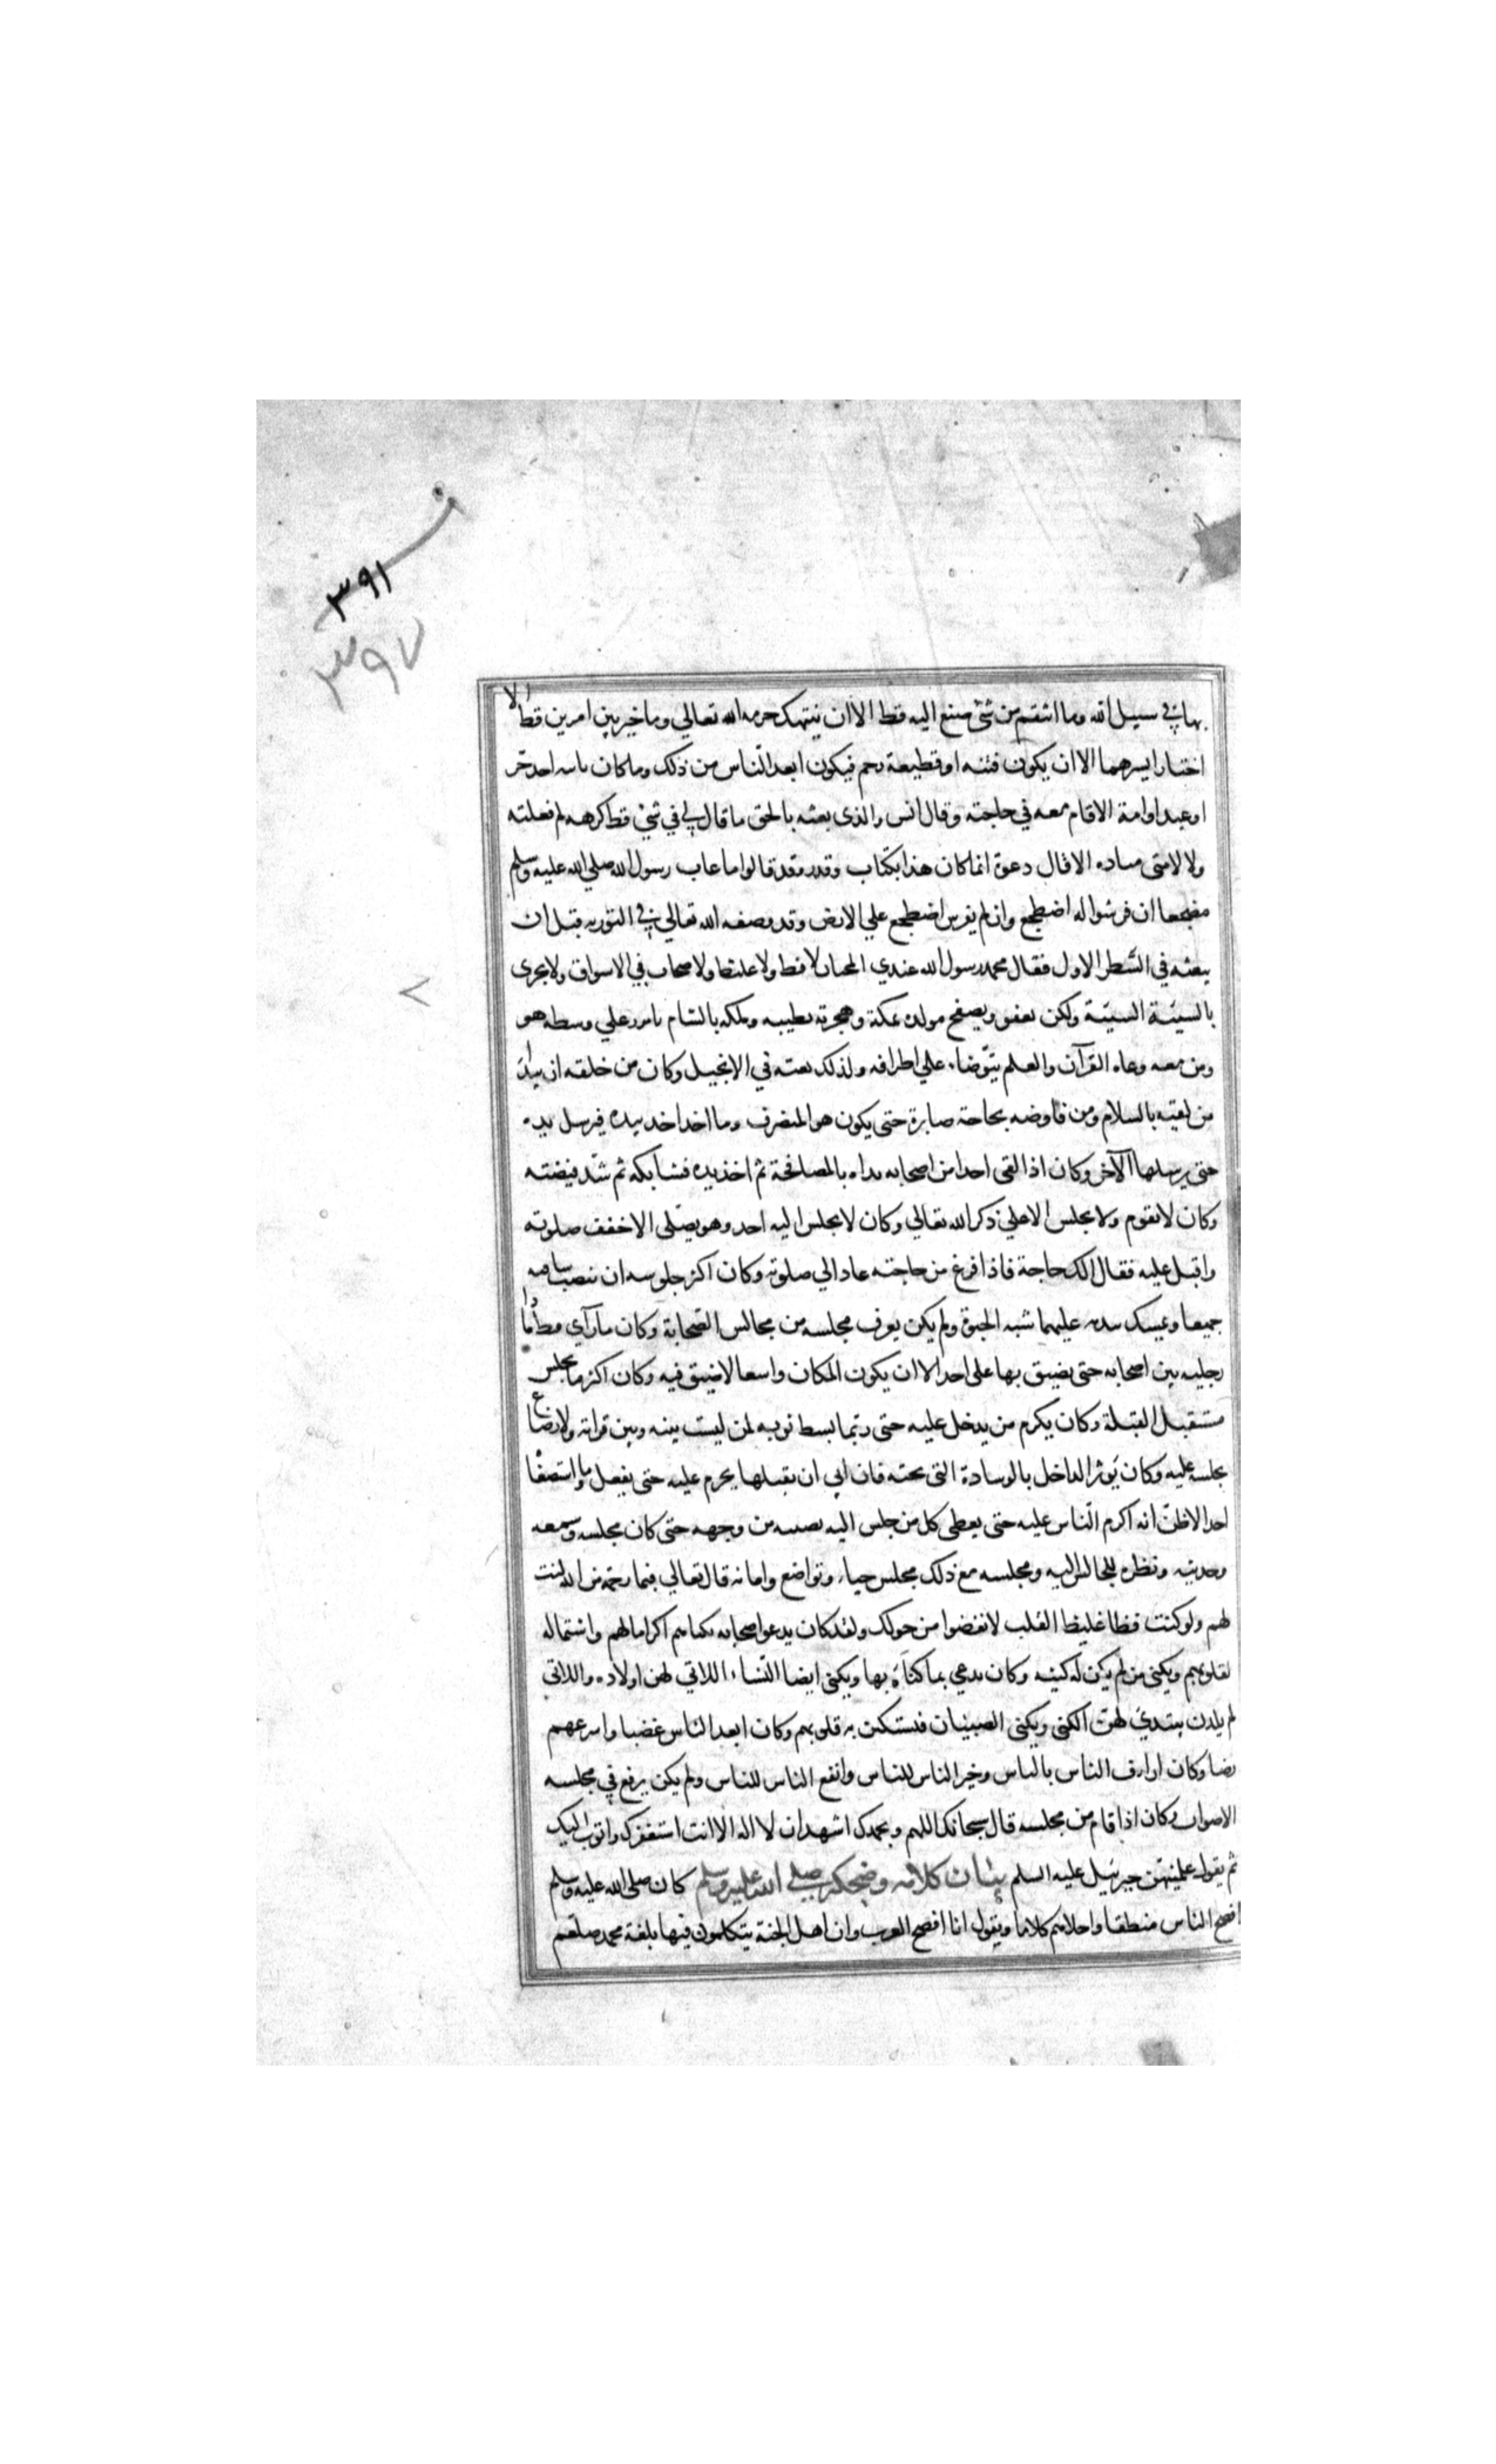 ٣٩١
٣٩٧
بها في سبيل الله وما انتقم من شئ صنع اليه قط الا ان ينتهك حرمه الله تعالي وما خير بين امرين قط الا
اختار ايسرهما الا ان يكون فتنه او قطيعة رحم فيكون ابعد الناس من ذلك وما كان ياتيه احد حر
او عبد او امة الا قام معه في حاجته وقال انس والذى بعثه بالحق ما قال لي في شئ قط كرهه لم فعلته
ولا لامنى الا قال دعوة انما كان هذا بكتاب وقدر وقد قالوا ما عاب رسول الله صلي الله عليه وسلم
مضجعا ان فرشوا له اضطجع وان لم يفرس اضطجع علي الارض وقد وصفه الله تعالي في التوريه قبل ان
يبعثه في السطر الاول فقال محمد رسول الله عبدي المختار لا فظ ولا غليظ ولا صخاب في الاسواق ولا يجزى
بالسيئة السيئة ولكن يعفو ويصفح مولده بمكة وهجرته بطيبه وملكه بالشام ياتزر علي وسطه هو
ومن معه وعاه القرآن والعلم يتوضا علي اطرافه ولذلك نعته في الانجيل وكان من خلقه ان يبدا
من لقيه بالسلام ومن فاوضه بحاجة صابره حتى يكون هو المنصرف وما اخذ احد بيده فيرسل يده
حتى يرسلها الآخر وكان اذا لقى احدا من اصحابه بداه بالمصافحة ثم اخذ بيده فشابكه ثم شد قبضته
وكان لا يقوم ولا يجلس الا علي ذكر الله تعالي وكان لا يجلس اليه احد وهو يصلى الا خفف صلوته
واقبل عليه فقال الك حاجة فاذا فرغ من حاجته عاد الي صلوته وكان اكثر جلوسه ان ينصب ساقيه
جميعا ويمسك بيديه عليهما شبه الحبوة ولم يكن يعرف مجلسه من مجالس الصحابة وكان ما رآي قط مادا
رجليه بين اصحابه حتى يضيق بها على احد الا ان يكون المكان واسعا لا ضيق فيه وكان اكثر ما يجلس
مستقبل القبلة وكان يكرم من يدخل عليه حتى ربما بسط ثوبه لمن ليست بينه وبين قرابة ولا رضاع
يجلسه عليه وكان يؤثر الداخل بالوسادة التى تحته فان ابي ان يقبلها يحرم عليه حتى يفعل وما استصفا
احد الا ظن انه اكرم الناس عليه حتى يعطى كل من جلس اليه نصيبه من وجهه حتى كان مجلسه وسمعه
وحديثه ونظره للجالس اليه ومجلسه مع ذلك مجلس حياء وتواضع وامانه قال تعالي فبما رحمة من الله لنت
لهم ولو كنت فظا غليظ القلب لانفضوا من حولك ولقد كان يدعوا صحابه بكناهم اكراما لهم واستماله
لقلوبهم ويكنى من لم يكن له كنيه وكان يدعي بما كناه بها ويكنى ايضا النساء اللاتي لهن اولاده واللاتى
لم يلدن يبتدئ لهن الكنى ويكنى الصبيان فتستكن به قلوبهم وكان ابعد الناس غضبا واسرعهم
رضا وكان اراف الناس بالناس وخير الناس للناس وانفع الناس للناس ولم يكن يرفع في مجلسه
الاصوات وكان اذا قام من مجلسه قال سبحانك اللهم وبحمدك اشهد ان لا اله الا انت استغفرك واتوب اليك
ثم يقول علمنيهن جبرئيل عليه السلم بيان كلامه وضحكه صلي الله عليه وسلم كان صلى الله عليه وسلم
افصح الناس منطقا واحلاهم كلاما ويقول انا افصح العرب وان اهل الجنة يتكلمون فيها بلغة محمد صلعم